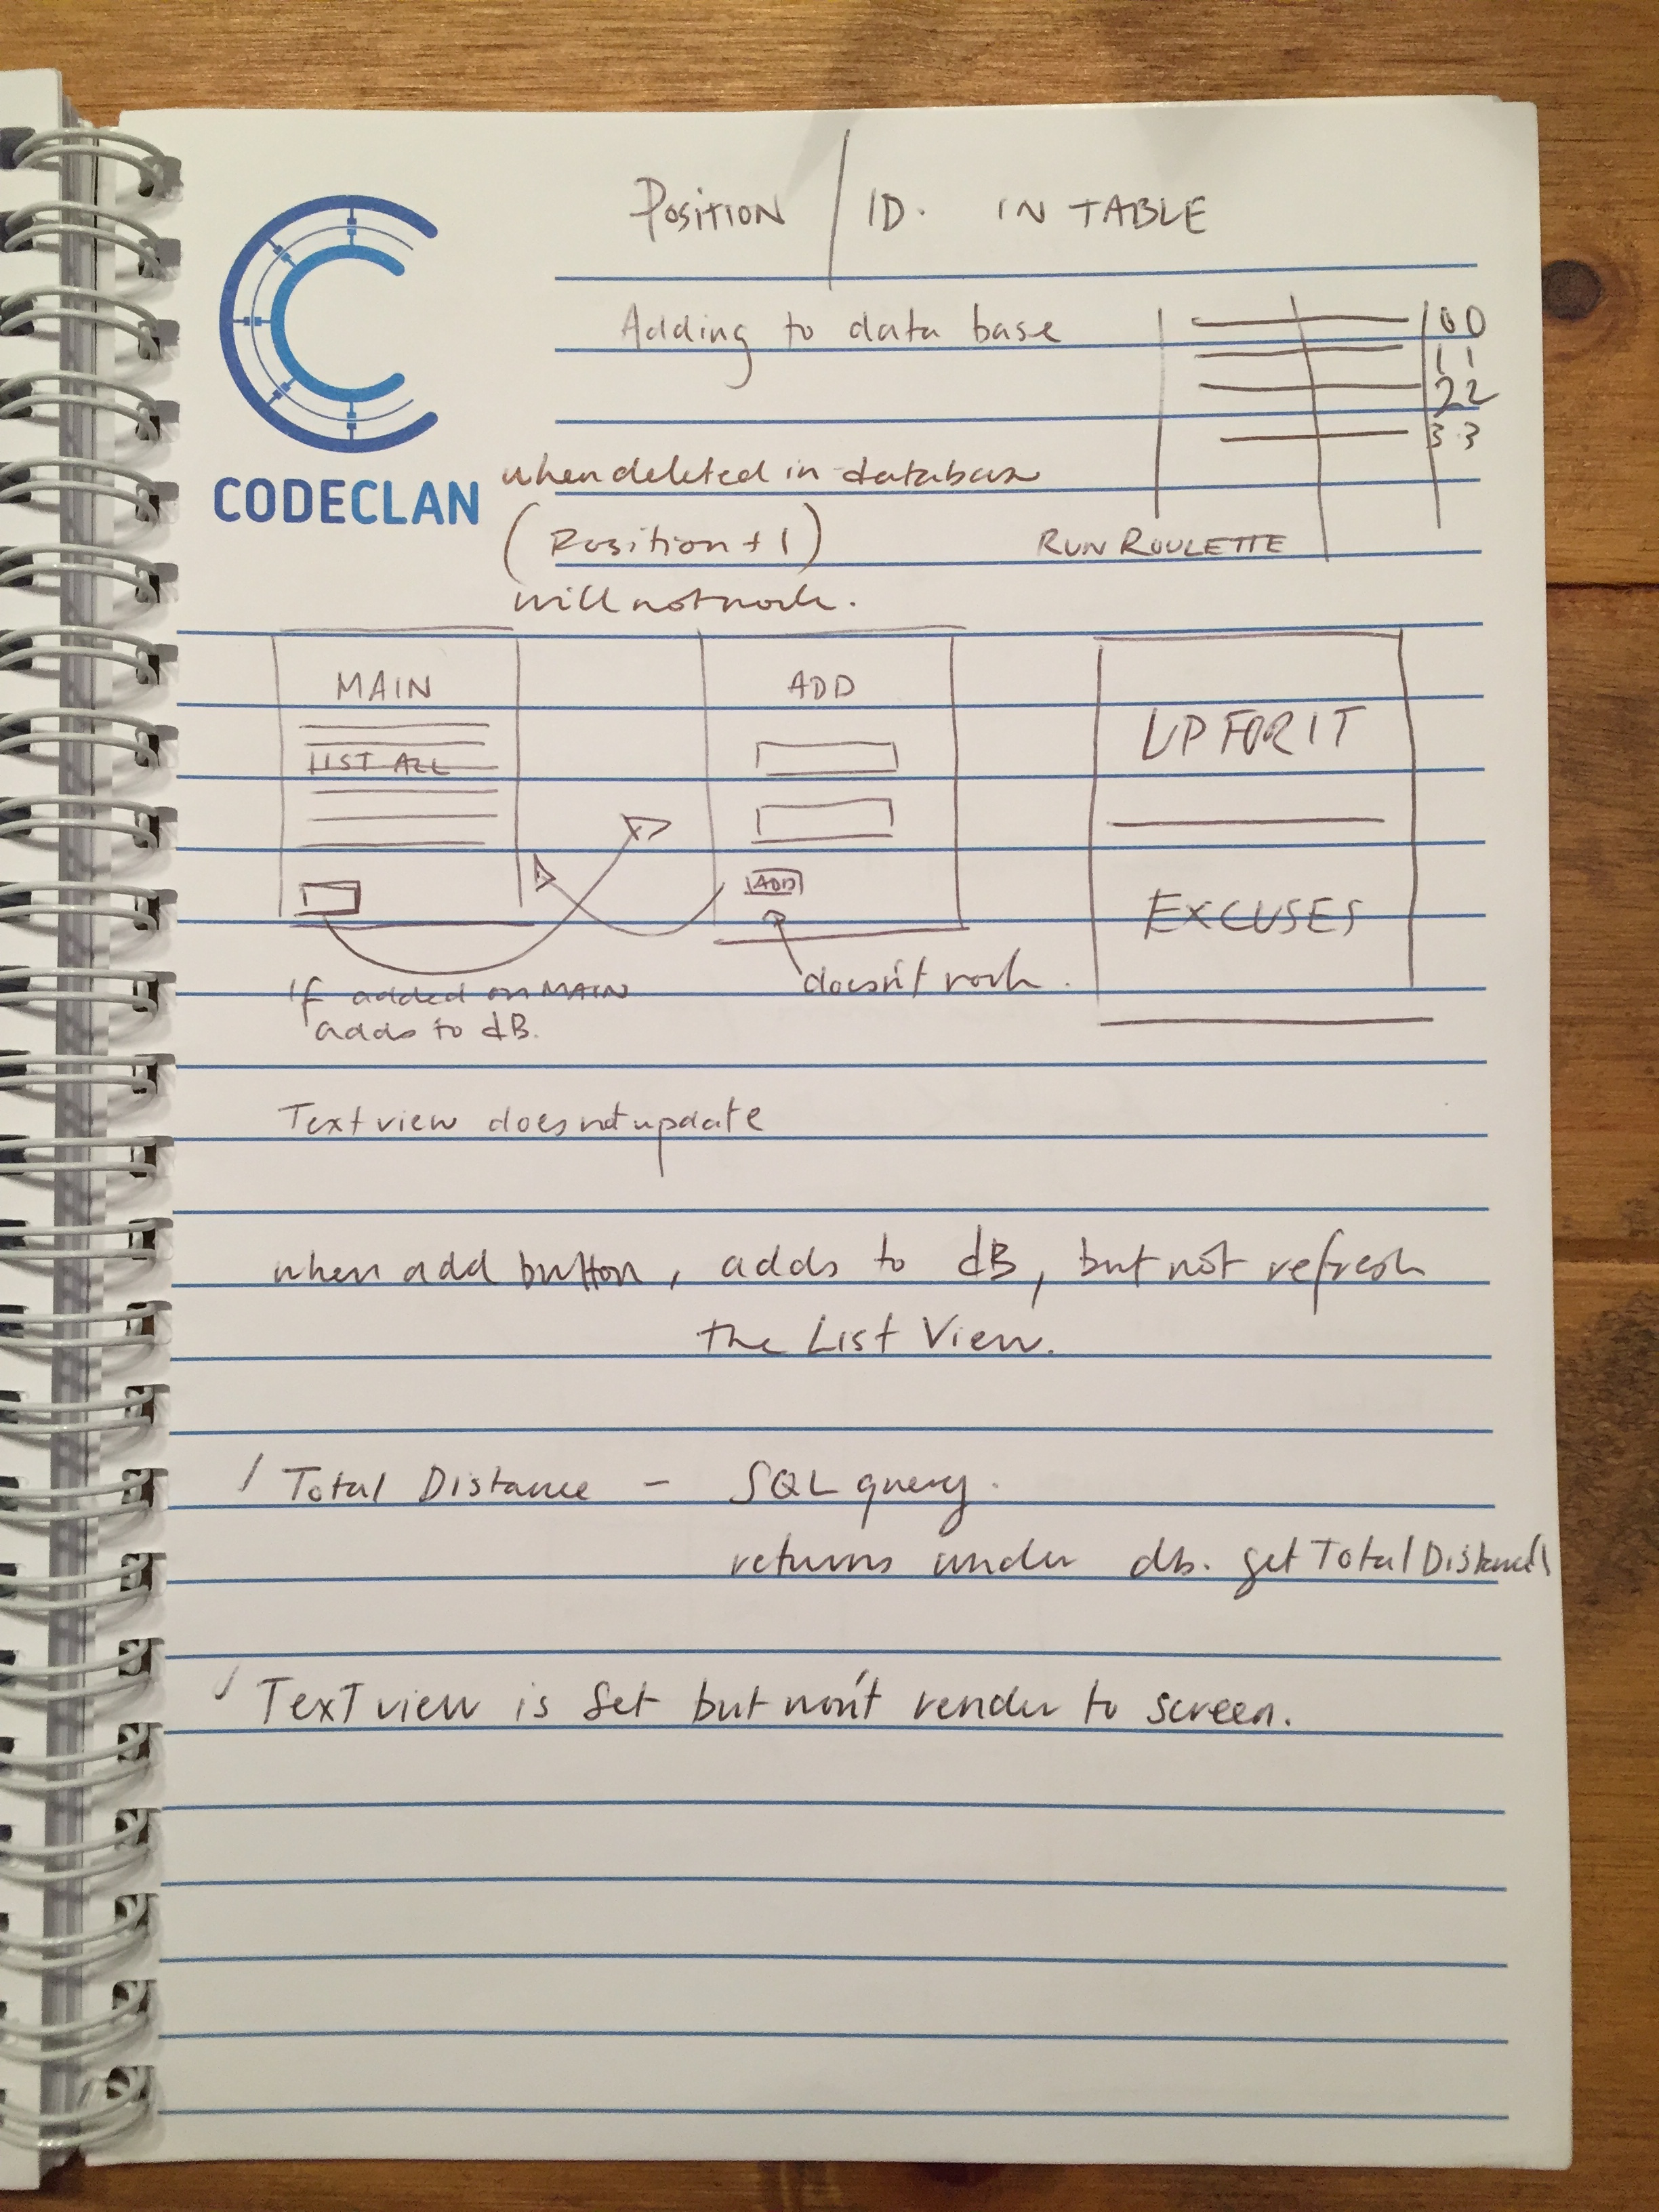 POSITION / ID. IN TABLE
Adding to data base
0 0
1 1
2 2
3 3
CODECLAN
when deleted in database
(Position + 1)
RUN ROULETTE
will not work.
MAIN
LIST ALL
ADD
ADD
UP FOR IT
EXCUSES
doesn't work.
if added on MAIN
adds to dB.
Textview does not update
when add button, adds to dB, but not refresh
the List View.
/ Total Distance - SQL query.
returns under db. getTotalDistance()
✓ TexTview is set but won't render to screen.